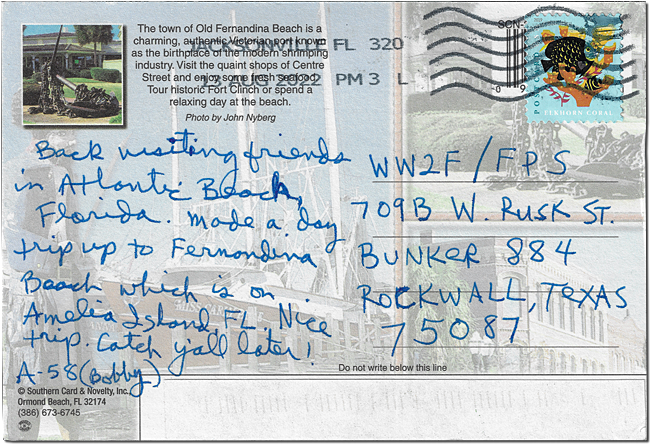 The town of Old Fernandina Beach is a
charming, authentic Victorian port known
as the birthplace of the modern shrimping
industry. Visit the quaint shops of Centre
Street and enjoy some fresh seafood.
Tour historic Fort Clinch or spend a
relaxing day at the beach.
Photo by John Nyberg
JACKSONVILLE FL 320
AUG 2022 PM 3 L
SCN
0 9
ELKHORN CORAL
Back visiting friends
in Atlantic Beach,
Florida. Made a day
trip up to Fernandina
Beach which is on
Amelia Island, FL. Nice
trip. Catch y'all later!
A-58 (Bobby)
WW2F/FPS
709B W. RUSK ST.
BUNKER 884
ROCKWALL, TEXAS
75087
Do not write below this line
© Southern Card & Novelty, Inc.
Ormond Beach, FL 32174
(386) 673-6745